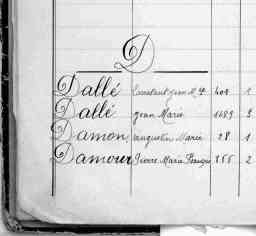 D
Dallé Constant Jean M. 404 1
Dallé Jean Marie 1689 3
Damon, Augustin Marie 28 1
Damour Pierre Marie 255 2